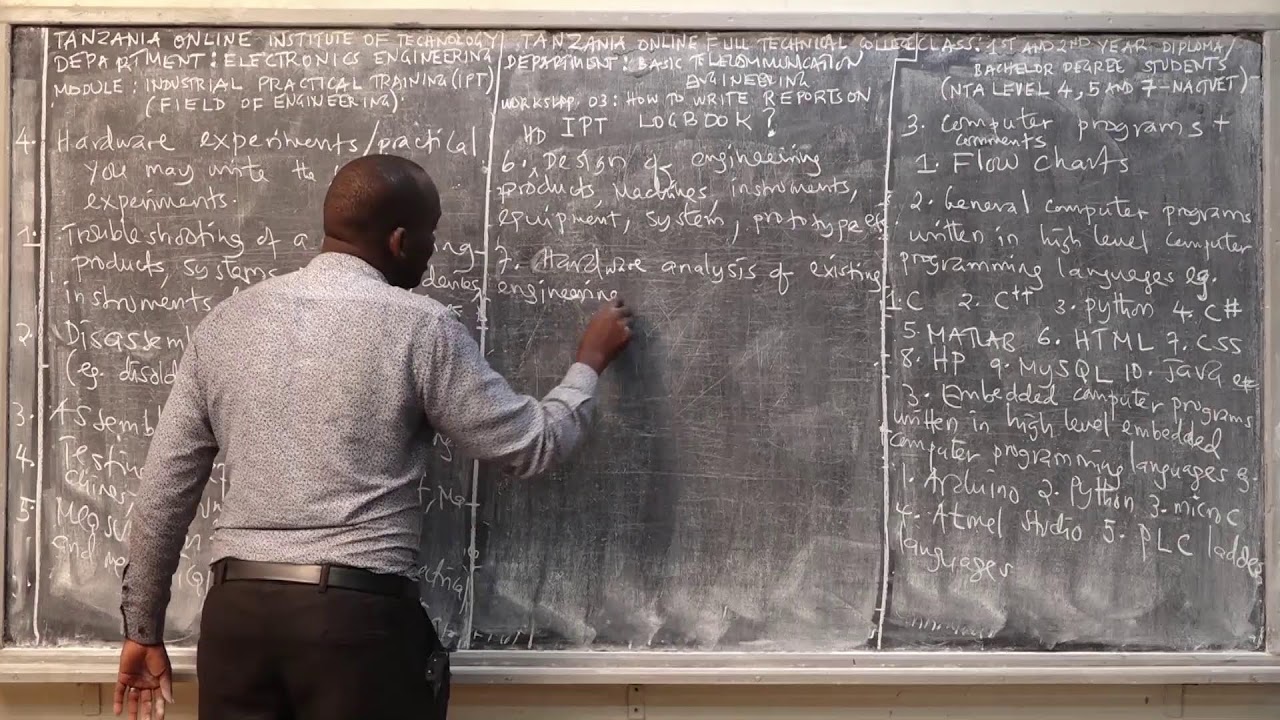 TANZANIA ONLINE INSTITUTE OF TECHNOLOGY
DEPARTMENT: ELECTRONICS ENGINEERING
MODULE: INDUSTRIAL PRACTICAL TRAINING (IPT)
(FIELD OF ENGINEERING)
4. Hardware experiments/practical
you may write the
experiments.
1. Troubleshooting of a
products, systems
instruments
2. Disassemb
(eg. disold
3. Assemb
4. Testing
5. Measu
and
TANZANIA ONLINE FULL TECHNICAL COLLEGE
DEPARTMENT: BASIC TELECOMMUNICATION
ENGINEERING
WORKSHOP. 03: HOW TO WRITE REPORTS ON
IPT LOGBOOK?
HD
6. Design of engineering
products, Machines, instruments,
equipment, system, prototype etc
7. Hardware analysis of existing
engineering
CLASS: 1ST AND 2ND YEAR DIPLOMA/
BACHELOR DEGREE STUDENTS
(NTA LEVEL 4, 5 AND 7-NACTVET)
3. Computer programs +
comments
1. Flow charts
2. General computer programs
written in high level computer
programming languages eg.
1. C 2. C++ 3. python 4. C#
5. MATLAB 6. HTML 7. CSS
8. HP 9. MySQL 10. Java etc
3. Embedded computer programs
written in high level embedded
computer programming languages eg.
1. Arduino 2. Python 3. micro C
4. Atmel Studio 5. PLC ladder
languages